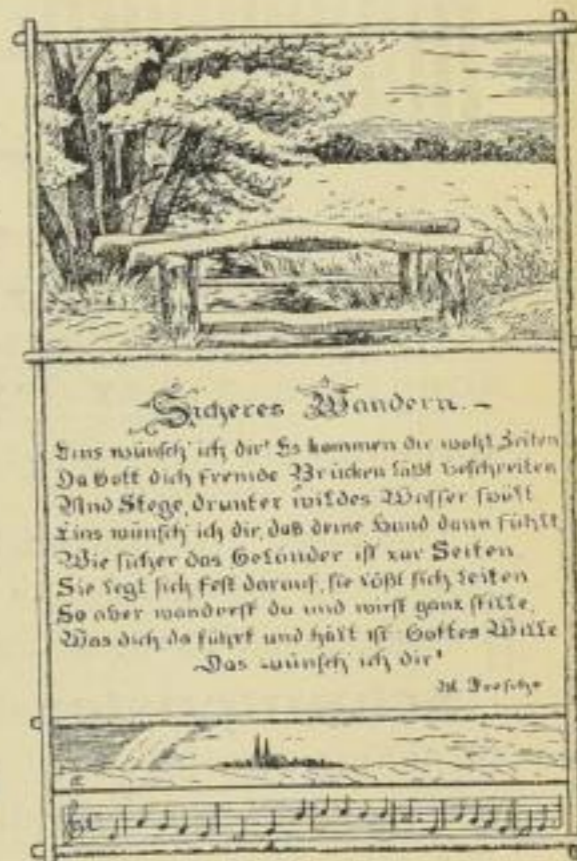 Sicheres Wandern. –
Eins wünsch' ich dir! Es kommen dir wohl Zeiten
Da Gott dich fremde Brücken läßt beschreiten
Und Stege, drunter wildes Wasser spült
Eins wünsch' ich dir, daß deine Hand dann fühlt,
Wie sicher das Geländer ist zur Seiten
Sie legt sich fest darauf, sie läßt sich leiten
So aber wanderst du und wirst ganz stille,
Was dich da führt und hält ist Gottes Wille
Das wünsch ich dir!
M.